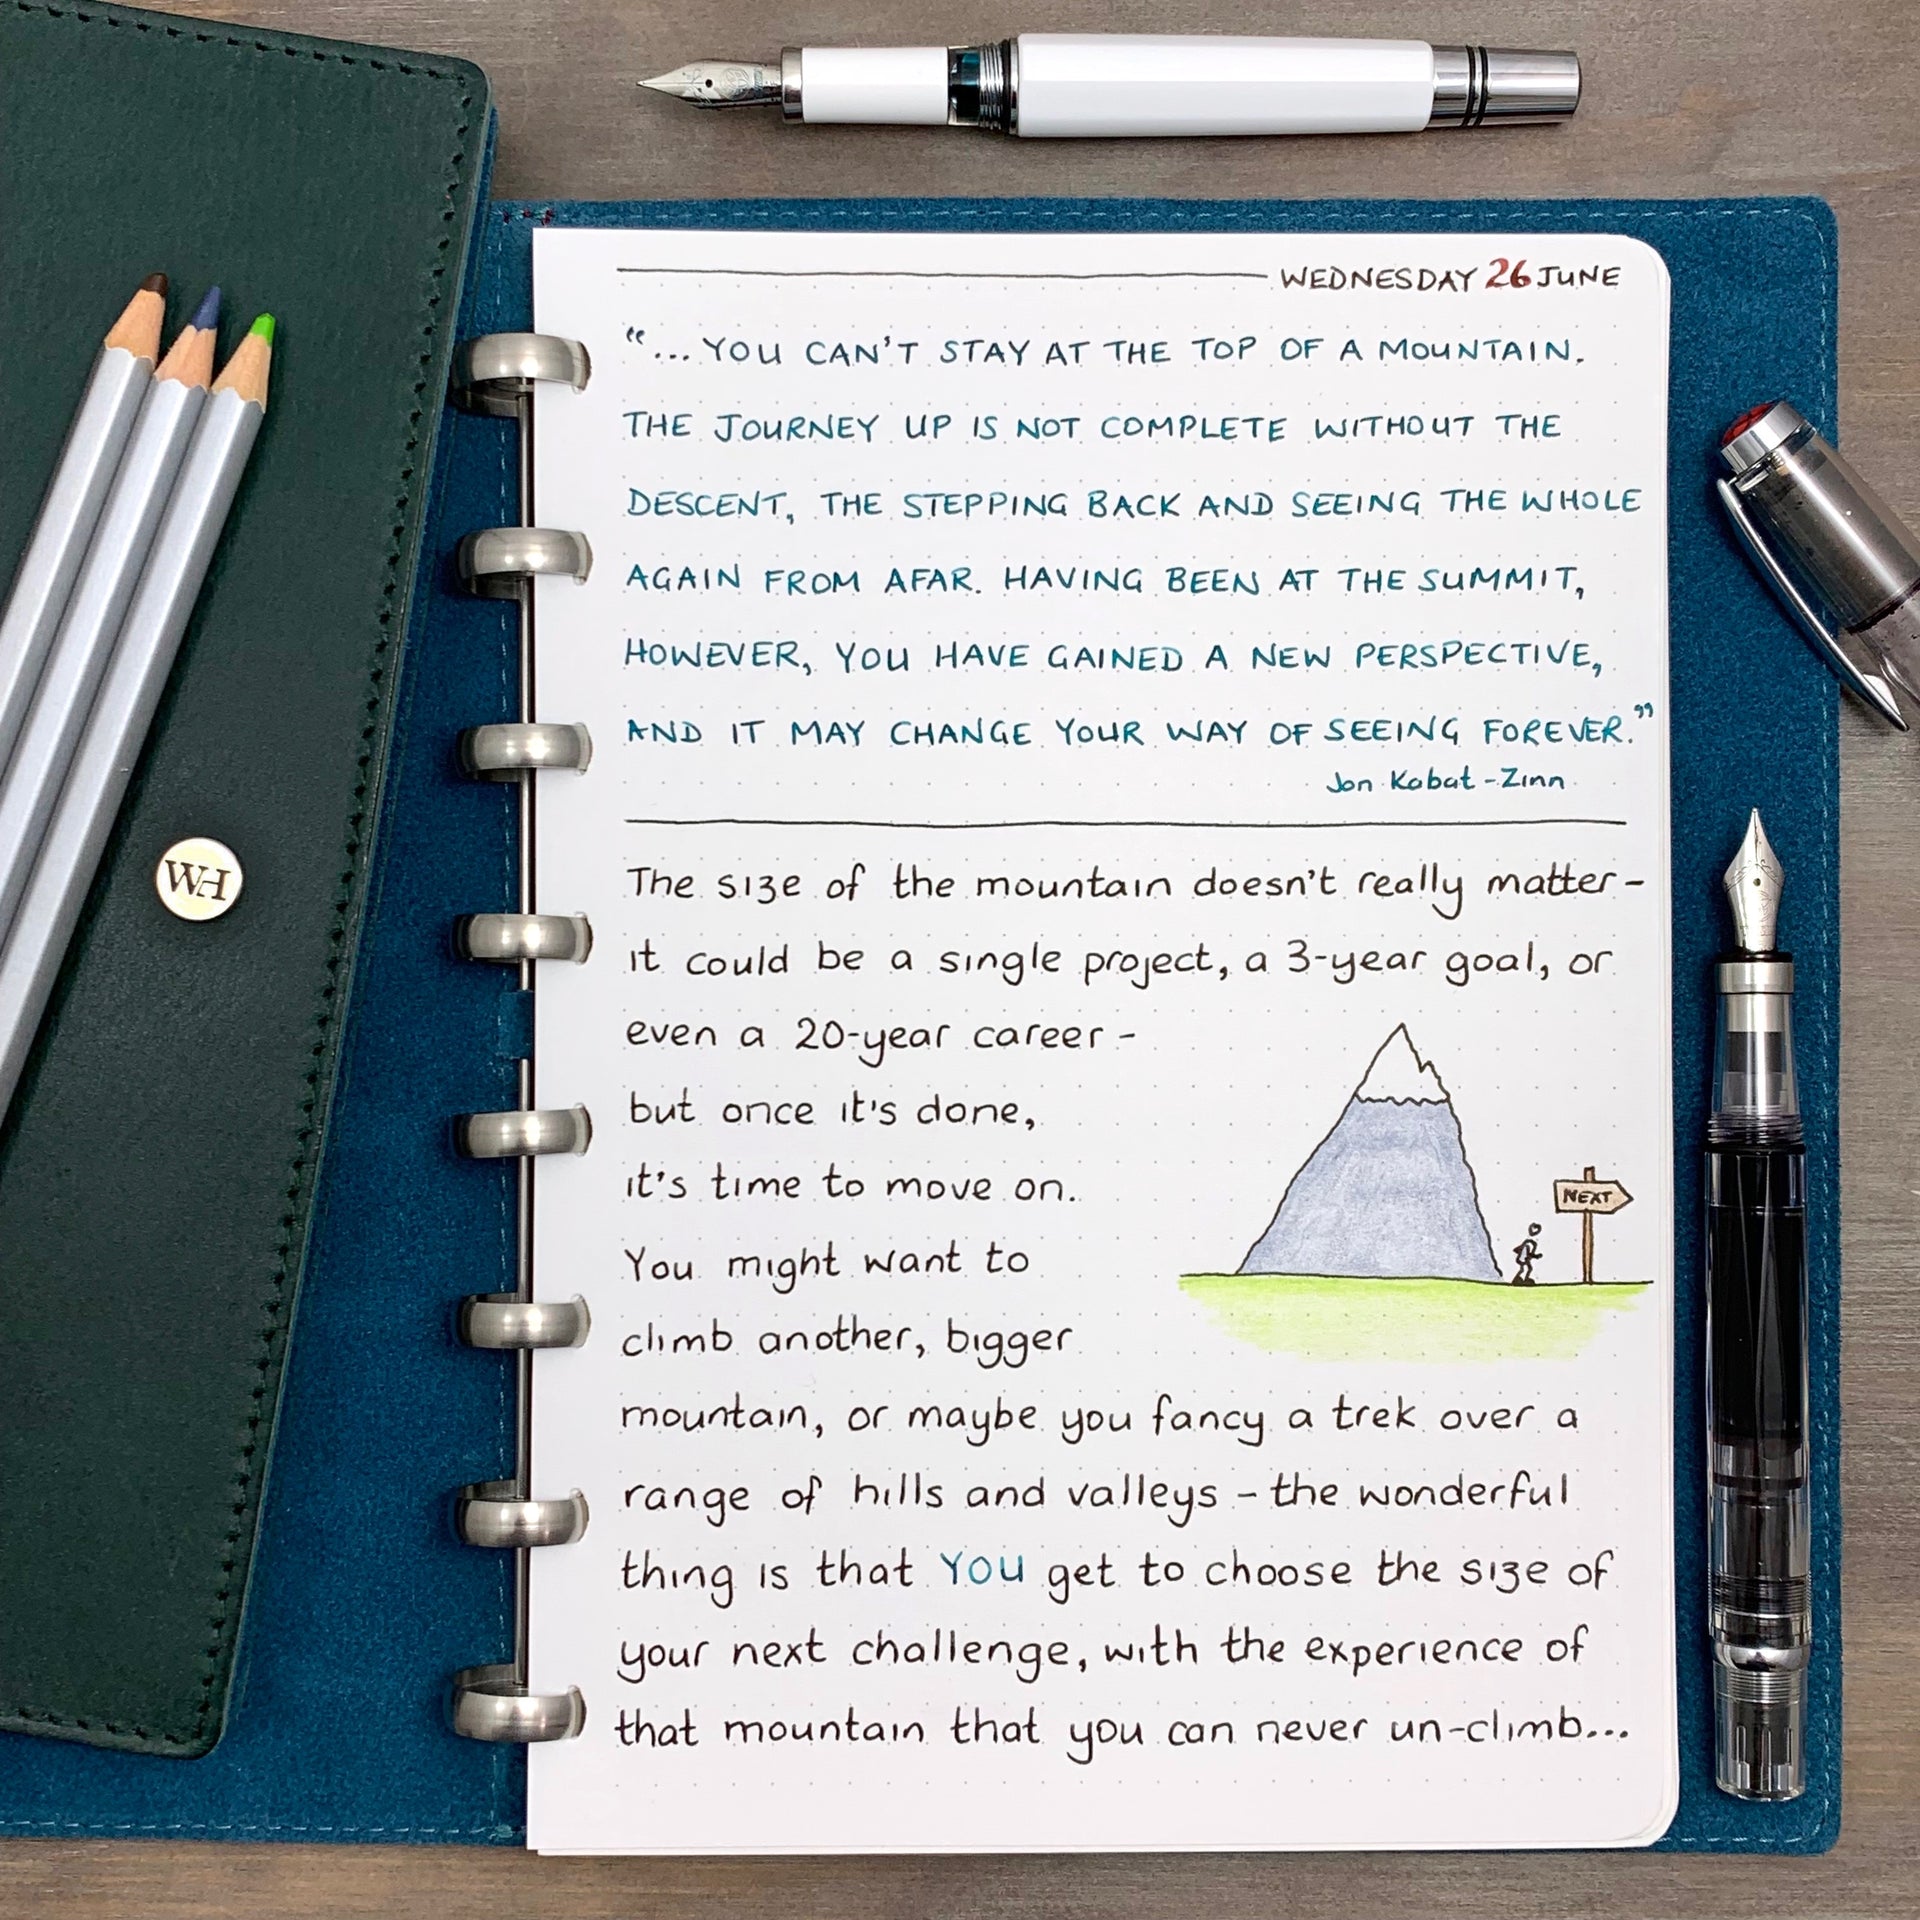 WEDNESDAY 26 JUNE
"... YOU CAN'T STAY AT THE TOP OF A MOUNTAIN.
THE JOURNEY UP IS NOT COMPLETE WITHOUT THE
DESCENT, THE STEPPING BACK AND SEEING THE WHOLE
AGAIN FROM AFAR. HAVING BEEN AT THE SUMMIT,
HOWEVER, YOU HAVE GAINED A NEW PERSPECTIVE,
AND IT MAY CHANGE YOUR WAY OF SEEING FOREVER."
Jon Kabat-Zinn
The size of the mountain doesn't really matter -
it could be a single project, a 3-year goal, or
even a 20-year career -
but once it's done,
it's time to move on.
You might want to
climb another, bigger
NEXT
mountain, or maybe you fancy a trek over a
range of hills and valleys - the wonderful
thing is that YOU get to choose the size of
your next challenge, with the experience of
that mountain that you can never un-climb...
WH